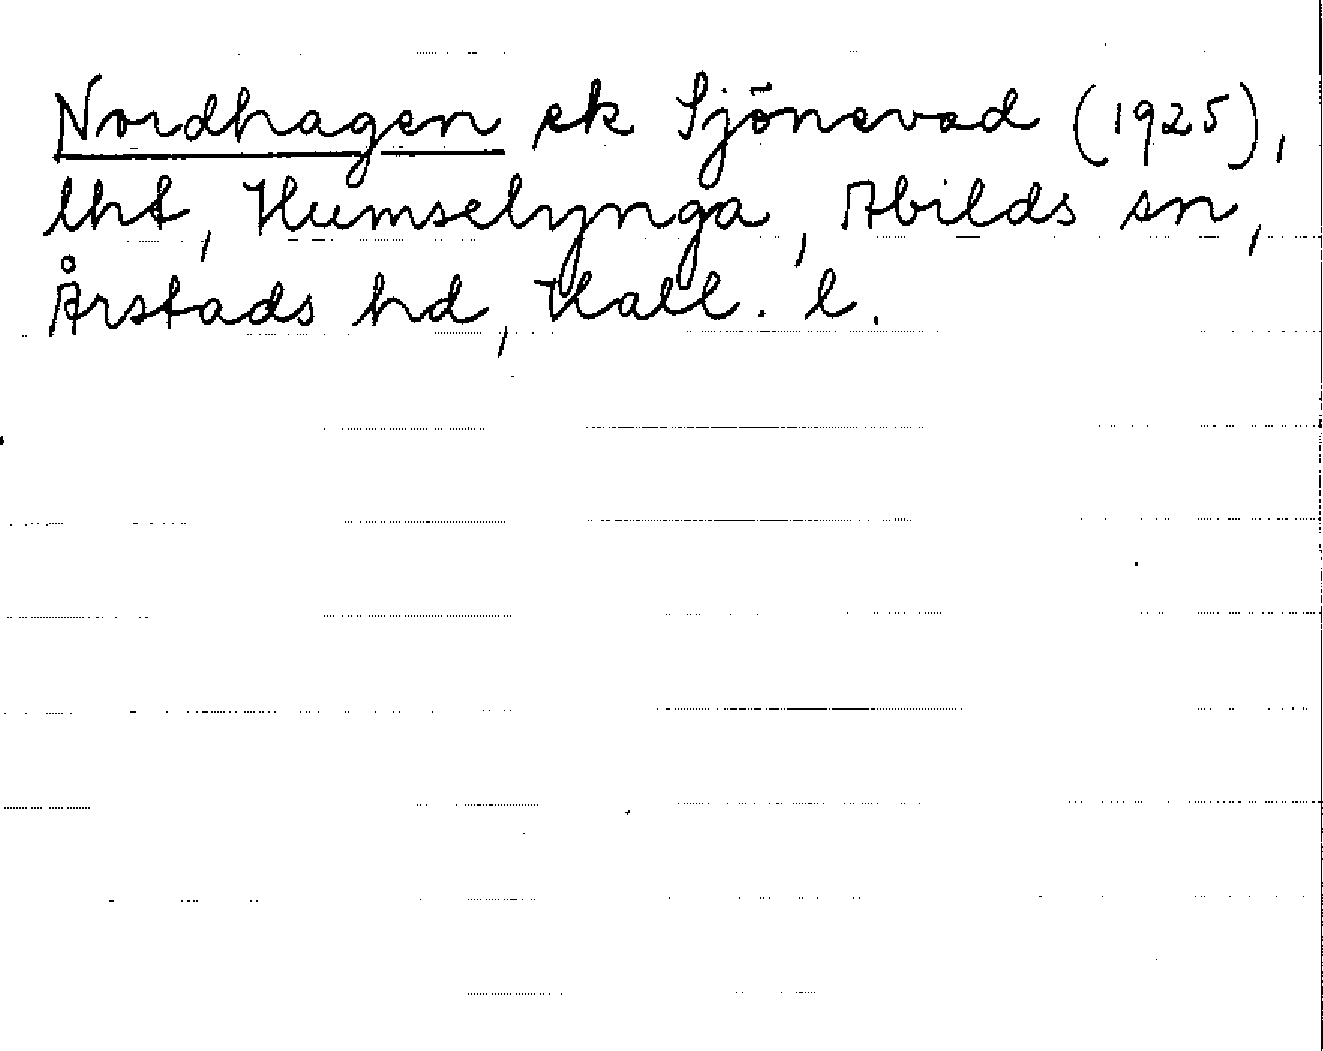 Nordhagen ek Sjönevad (1925),
lht, Humselynga, Abilds sn,
Årstads hd, Hall. l.